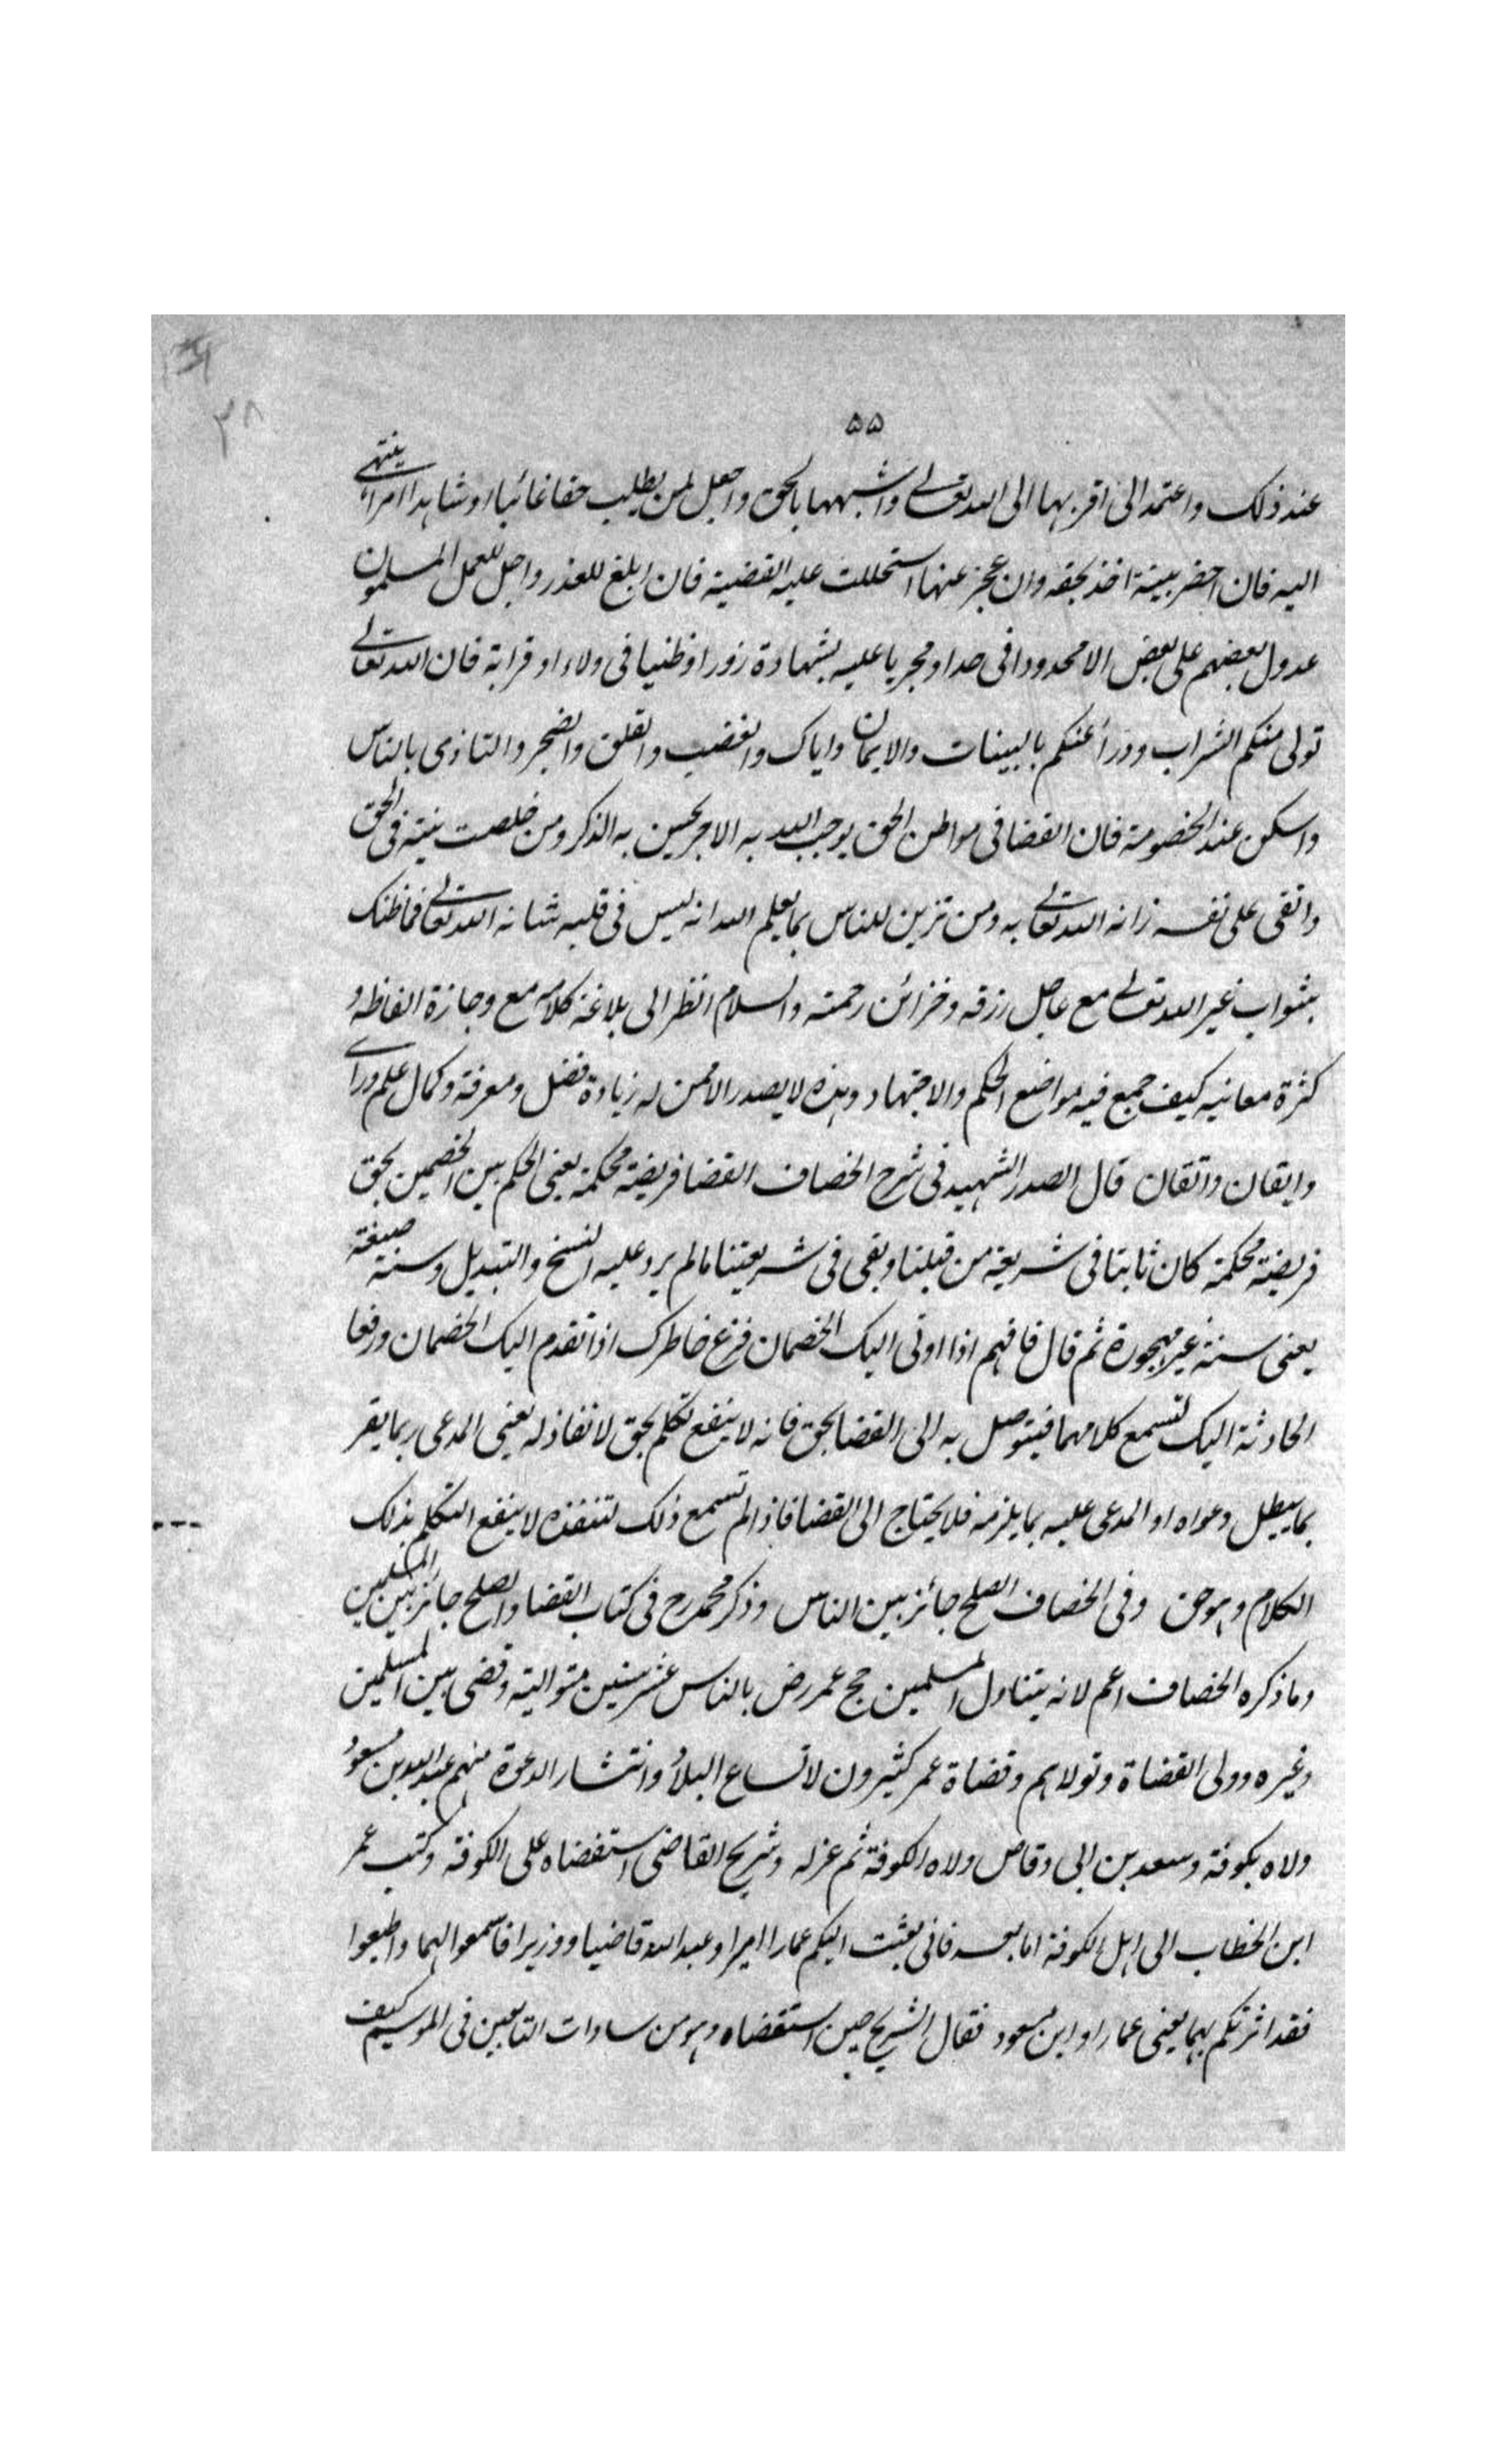 ۵۵
۲۸
عند ذلك واعتمد الى اقربها الى الله تعالى واشبهها بالحق واجعل لمن يطلب حقا غائبا او شاهدا امرا ينتهى
اليه فان احضر بينة اخذ بحقه وان عجز عنها استحللت عليه القضية فان ابلغ للعذر واجل للعمل المسلمون
عدول بعضهم على بعض الا محدودا فى حد او مجربا عليه بشهادة زور او ظنيا فى ولاء او قرابة فان الله تعالى
تولى منكم السراب ودرأ عنكم بالبينات والايمان واياك والغضب والقلق والضجر والتاذى بالناس
واسكن عند الخصومة فان القضا فى مواطن الحق يوجب الله به الاجر يحسن به الذكر ومن خلصت نيته فى الحق
واتقى على نفسه زانه الله تعالى به ومن تزين للناس بما يعلم الله انه ليس فى قلبه شانه الله تعالى فما ظنك
بثواب غير الله تعالى مع عاجل رزقه وخزائن رحمته والسلام انظر الى بلاغة كلامه مع وجازة الفاظه و
كثرة معانيه كيف جمع فيه مواضع الحكم والاجتهاد وهذه لا يصدر الا ممن له زيادة فضل ومعرفة وكمال علم وراى
وايقان واتقان قال الصدر الشهيد فى شرح الخصاف القضا فريضة محكمة يعنى الحكم بين الخصمين بحق
فريضة محكمة كان ثابتا فى شريعة من قبلنا وبقى فى شريعتنا مالم يرد عليه النسخ والتبديل وسنة صبيغة
يعنى سنة غير مهجورة ثم قال فافهم اذا اوتى اليك الخصمان فرغ خاطرك اذا تقدم اليك الخصمان ورفعا
الحادثة اليك لتسمع كلامهما فيتوصل به الى القضا بحق فانه لا ينفع تكلم بحق لا نفاذ له يعنى المدعى ربما يقر
بما يبطل دعواه او المدعى عليه بما يلزمه فلا يحتاج الى القضا فاذا لم تسمع ذلك لتنفذه لا ينفع التكلم بذلك
الكلام وهو حق وفى الخصاف الصلح جائز بين الناس وذكر محمد رح فى كتاب القضا والصلح جائز بين المسلمين
وما ذكره الخصاف اعم لانه يتناول المسلمين حج عمر رض بالناس عشر سنين متوالية وقضى بين المسلمين
وغيره وولى القضاة وتولاهم وقضاة عمر كثيرون لاتساع البلاد وانتشار الدعوة منهم عبد الله بن مسعود
ولاه بكوفة وسعد بن ابى وقاص ولاه الكوفة ثم عزله وشريح القاضى استقضاه على الكوفة وكتب عمر
ابن الخطاب الى اهل الكوفة اما بعد فانى بعثت اليكم عمارا اميرا وعبد الله قاضيا ووزيرا فاسمعوا لهما واطيعوا
فقد اثرتكم بهما يعنى عمارا وابن مسعود فقال لشريح حين استقضاه وهو من سادات التابعين فى الموسم كيف